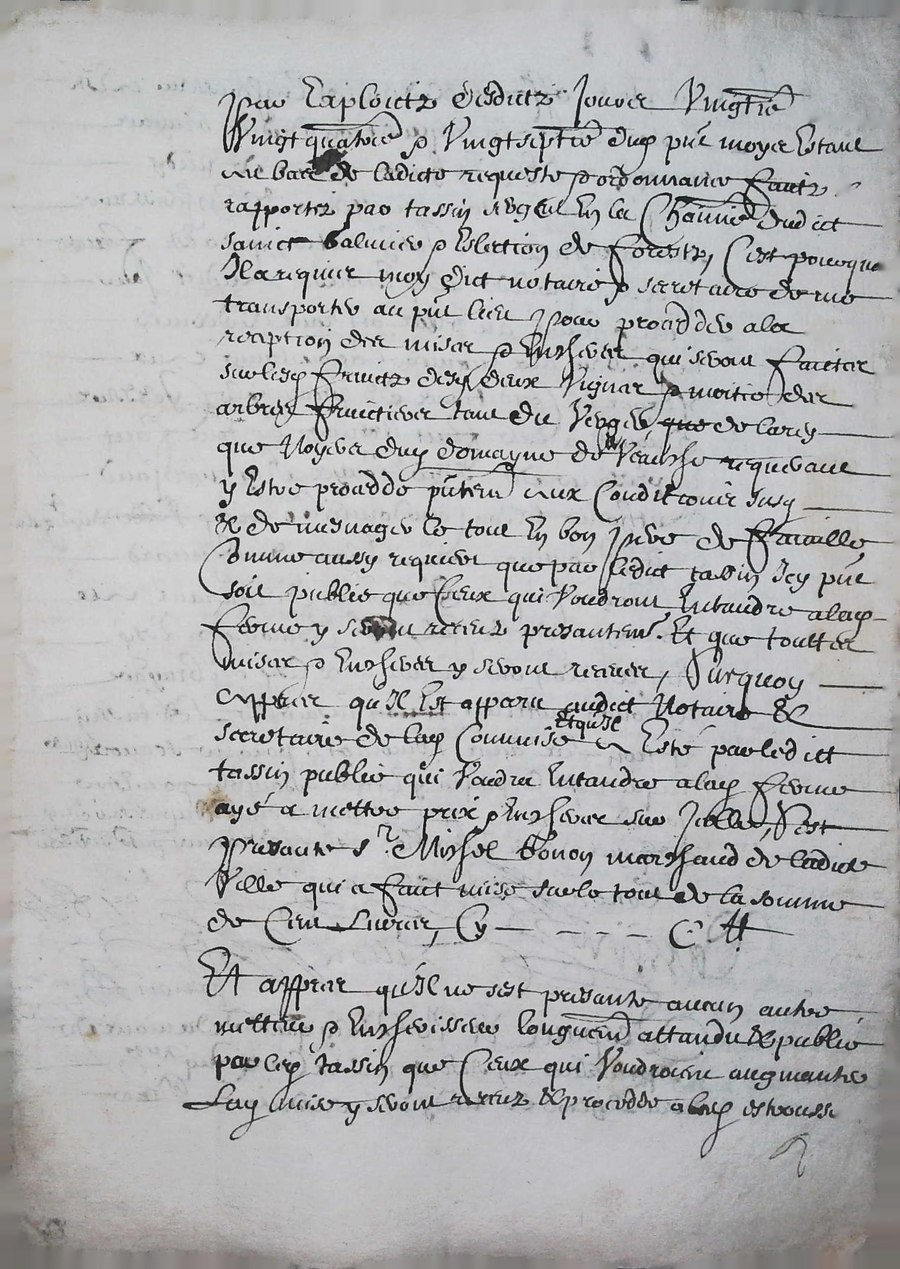 par Exploictz desdictz Jours Vingtie
Vingtquatrie & Vingtseptie dud pnt moys Estant
au bas de ladicte requeste & ordonnance faictz
rapportez par tassin sergent En la Chaunie dudict
sainct Galmier & Eslection de forestz, C'est pourquoy
Il a requis moy dict notaire & secretaire de me
transporter au pnt lieu pour procedder a la
reception des mises & Ensheres qui seront faictes
sur lesd fruictz desd deux Vignes & moitie des
arbres fruictiers tant du Verger que de lars
que Noyers dud domayne de Veaushe requerant
y Estre procedde pntemt aux Conditions susd
& de mesnager le tout En bon pere de famille
Comme aussy requiert que par ledict tassin Icy pnt
soit publie que Ceux qui Voudront Entandre a lad
ferme y seront receuz presantemt. Et que touttes
mises & Ensheres y seront receues, Surquoy
Appres qu'Il Est apparu audict Notaire &
secretaire de lad Commise Et qu'Il a Esté par ledict
tassin publie qui Voudra Entandre a lad ferme
aye a mettre prix & Ensherer sur Jcelle, S'est
presante sr. Mishel bonon marshand de ladicte
Ville qui a faict mise sur le tout de la somme
de Cent Livres, Cy — - - - - C ℔
Et appres qu'Il ne s'est presante aucun autre
metteur & Ensherisseur longuemt attandu & publie
par led tassin que Ceux qui Voudroient augmanter
Lad mise y seront receuz & procedde a lad estrousse